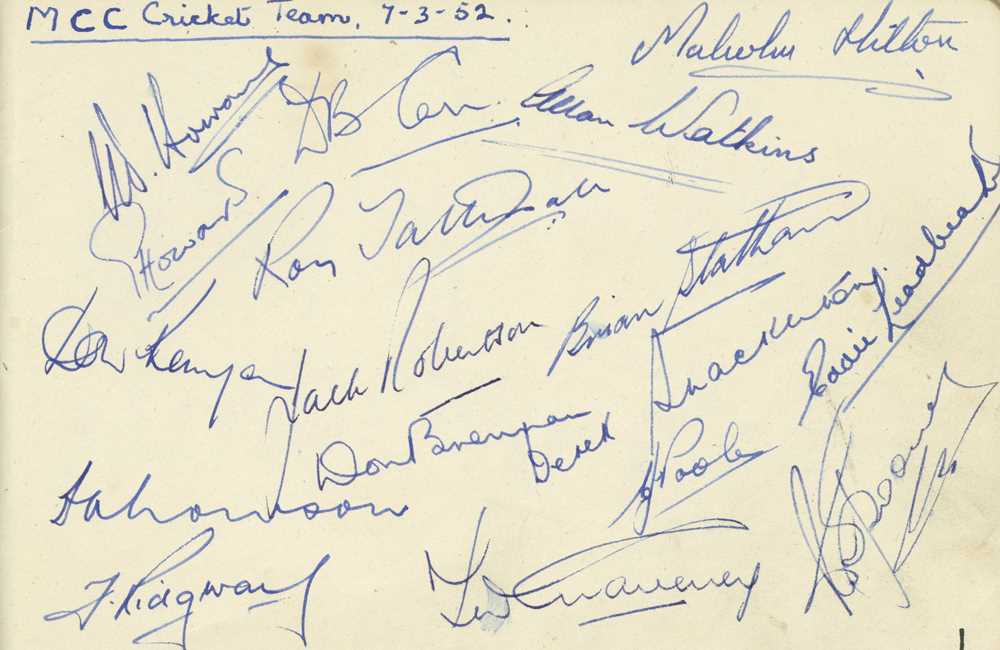 MCC Cricket Team. 7-3-52.
Malcolm Hilton
N. Howard
DB Carr
Allan Watkins
G Howard
Roy Tattersall
Brian Statham
Eddie Leadbeater
Don Kenyon
Jack Robertson
Derek Shackleton
Don Brennan
CJ Poole
F. Ridgway
Tom Graveney